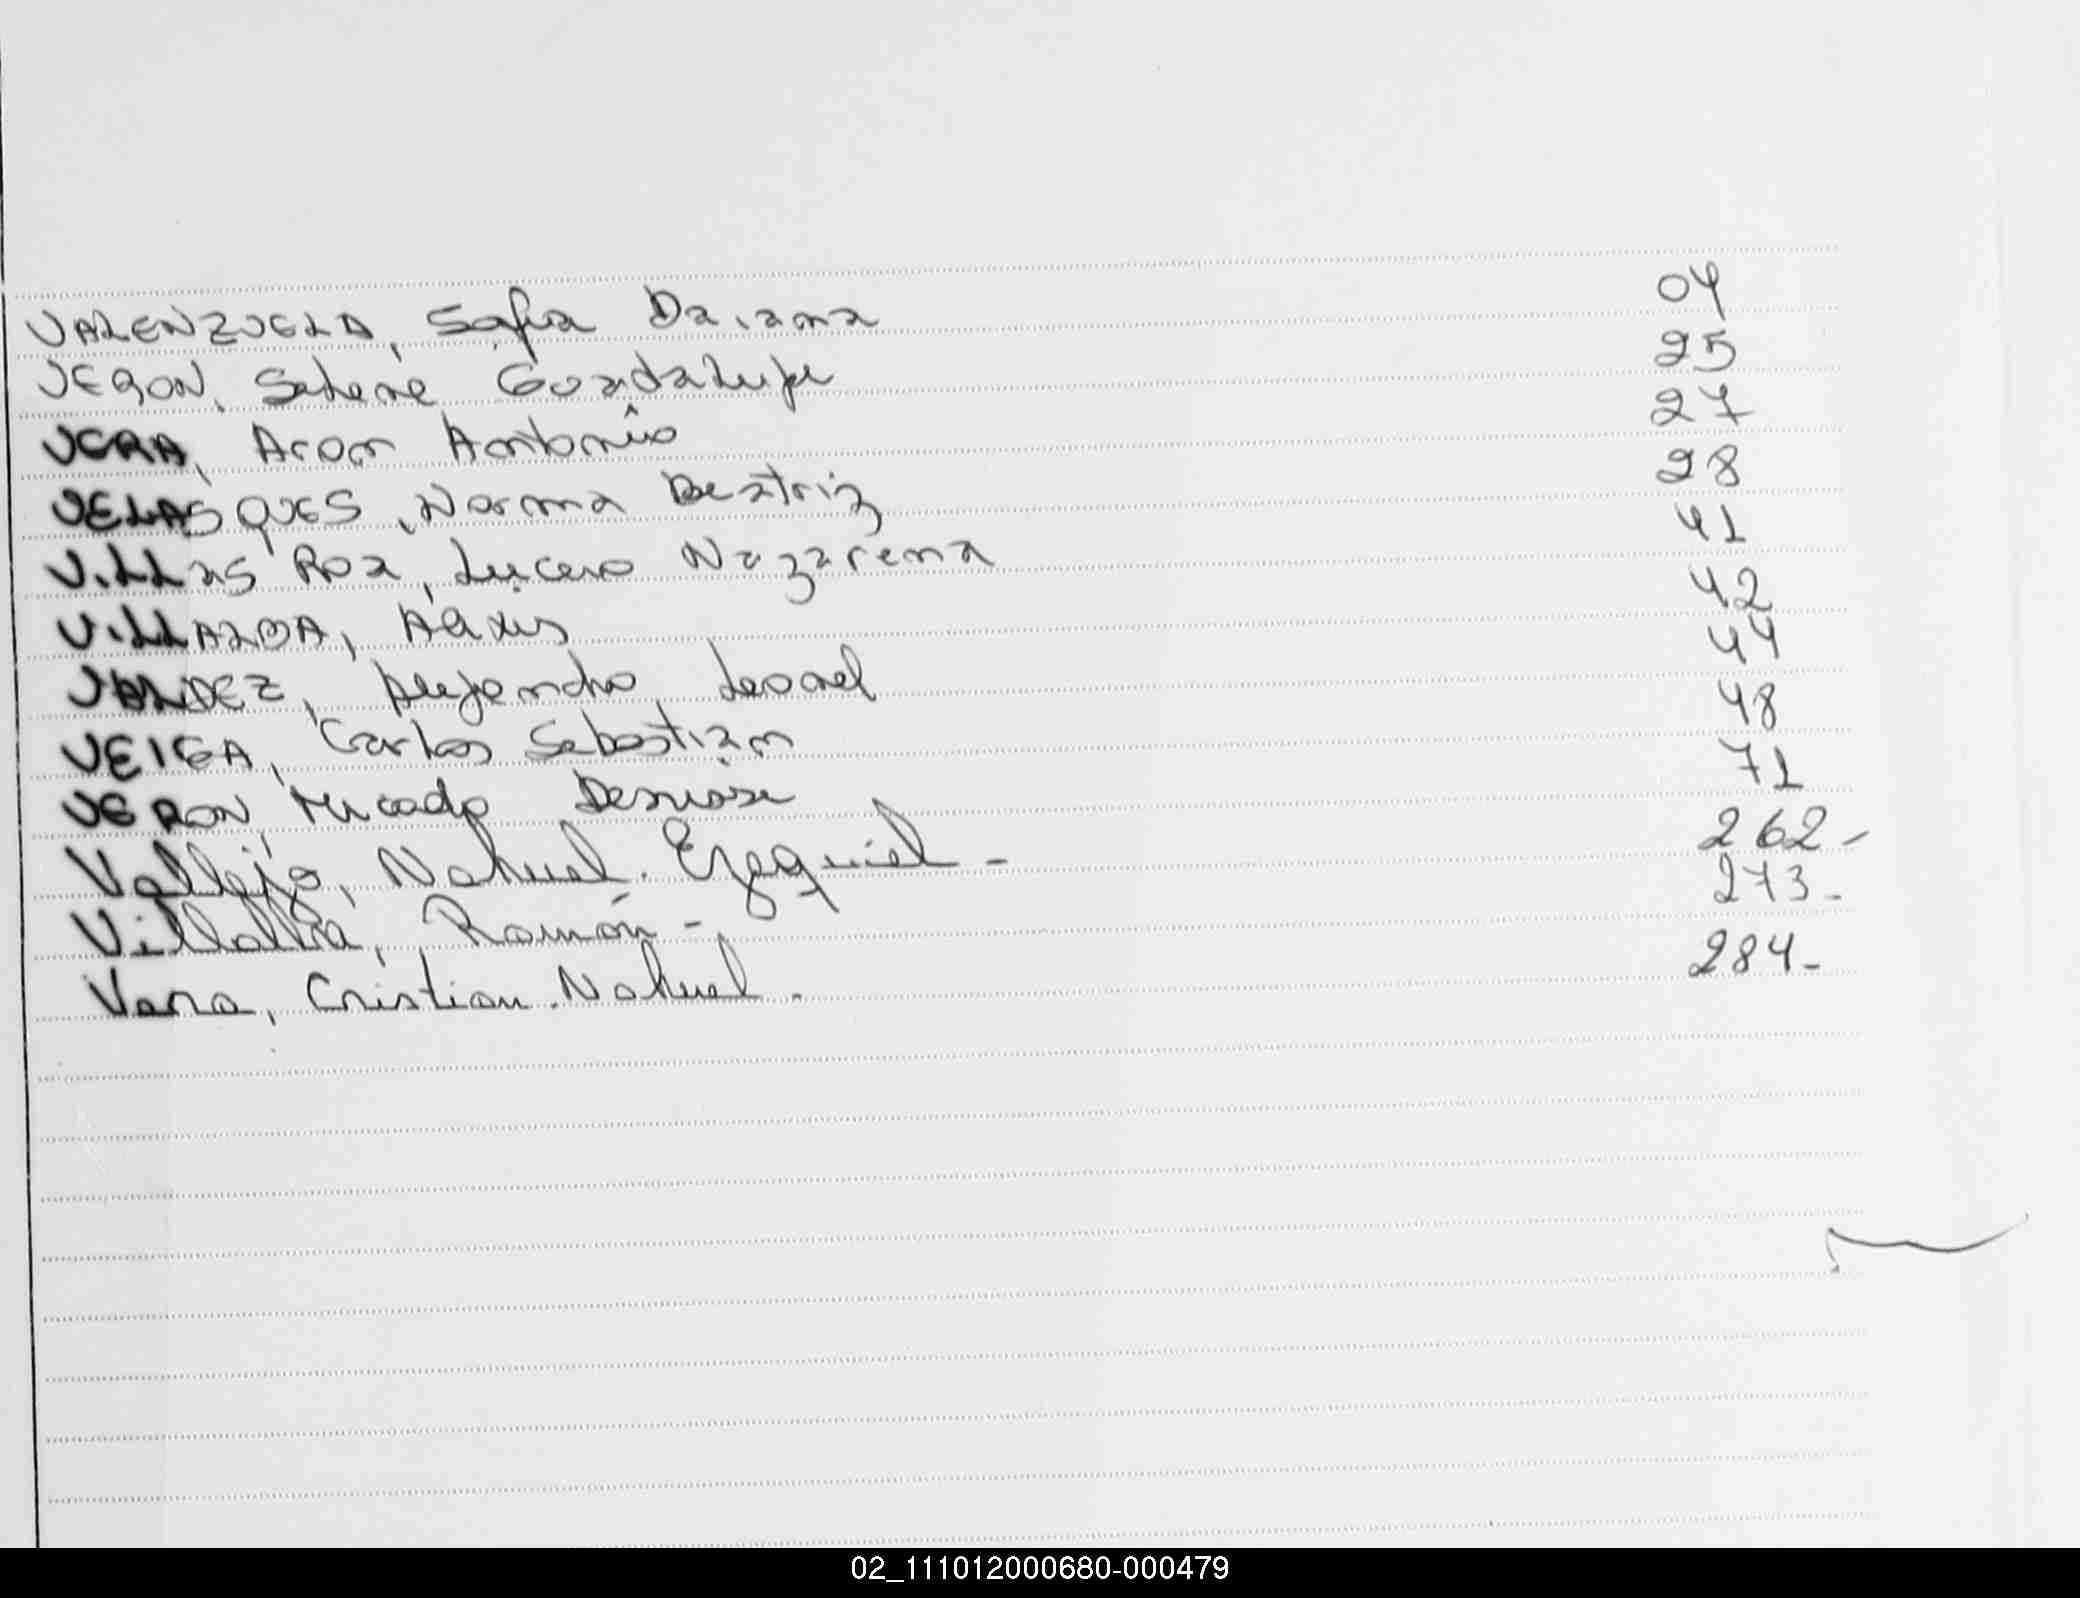 VALENZUELA, Sofia Daiana 04
VEGON, Selene Guadalupe 25
VERA, Aron Antonio 27
VELASQUES, Norma Beatriz 28
VILLAS Boa, Lucero Nazarena 41
VILLALBA, Alexis 42
VALDEZ, Alejandro Leonel 44
VEIGA, Carlos Sebastian 48
VERON, 71
Vallejo, Nahuel. Ezequiel - 262-
Villalba, Ramón - 273-
Vera, Cristian. Nahuel. 284-
02_111012000680-000479